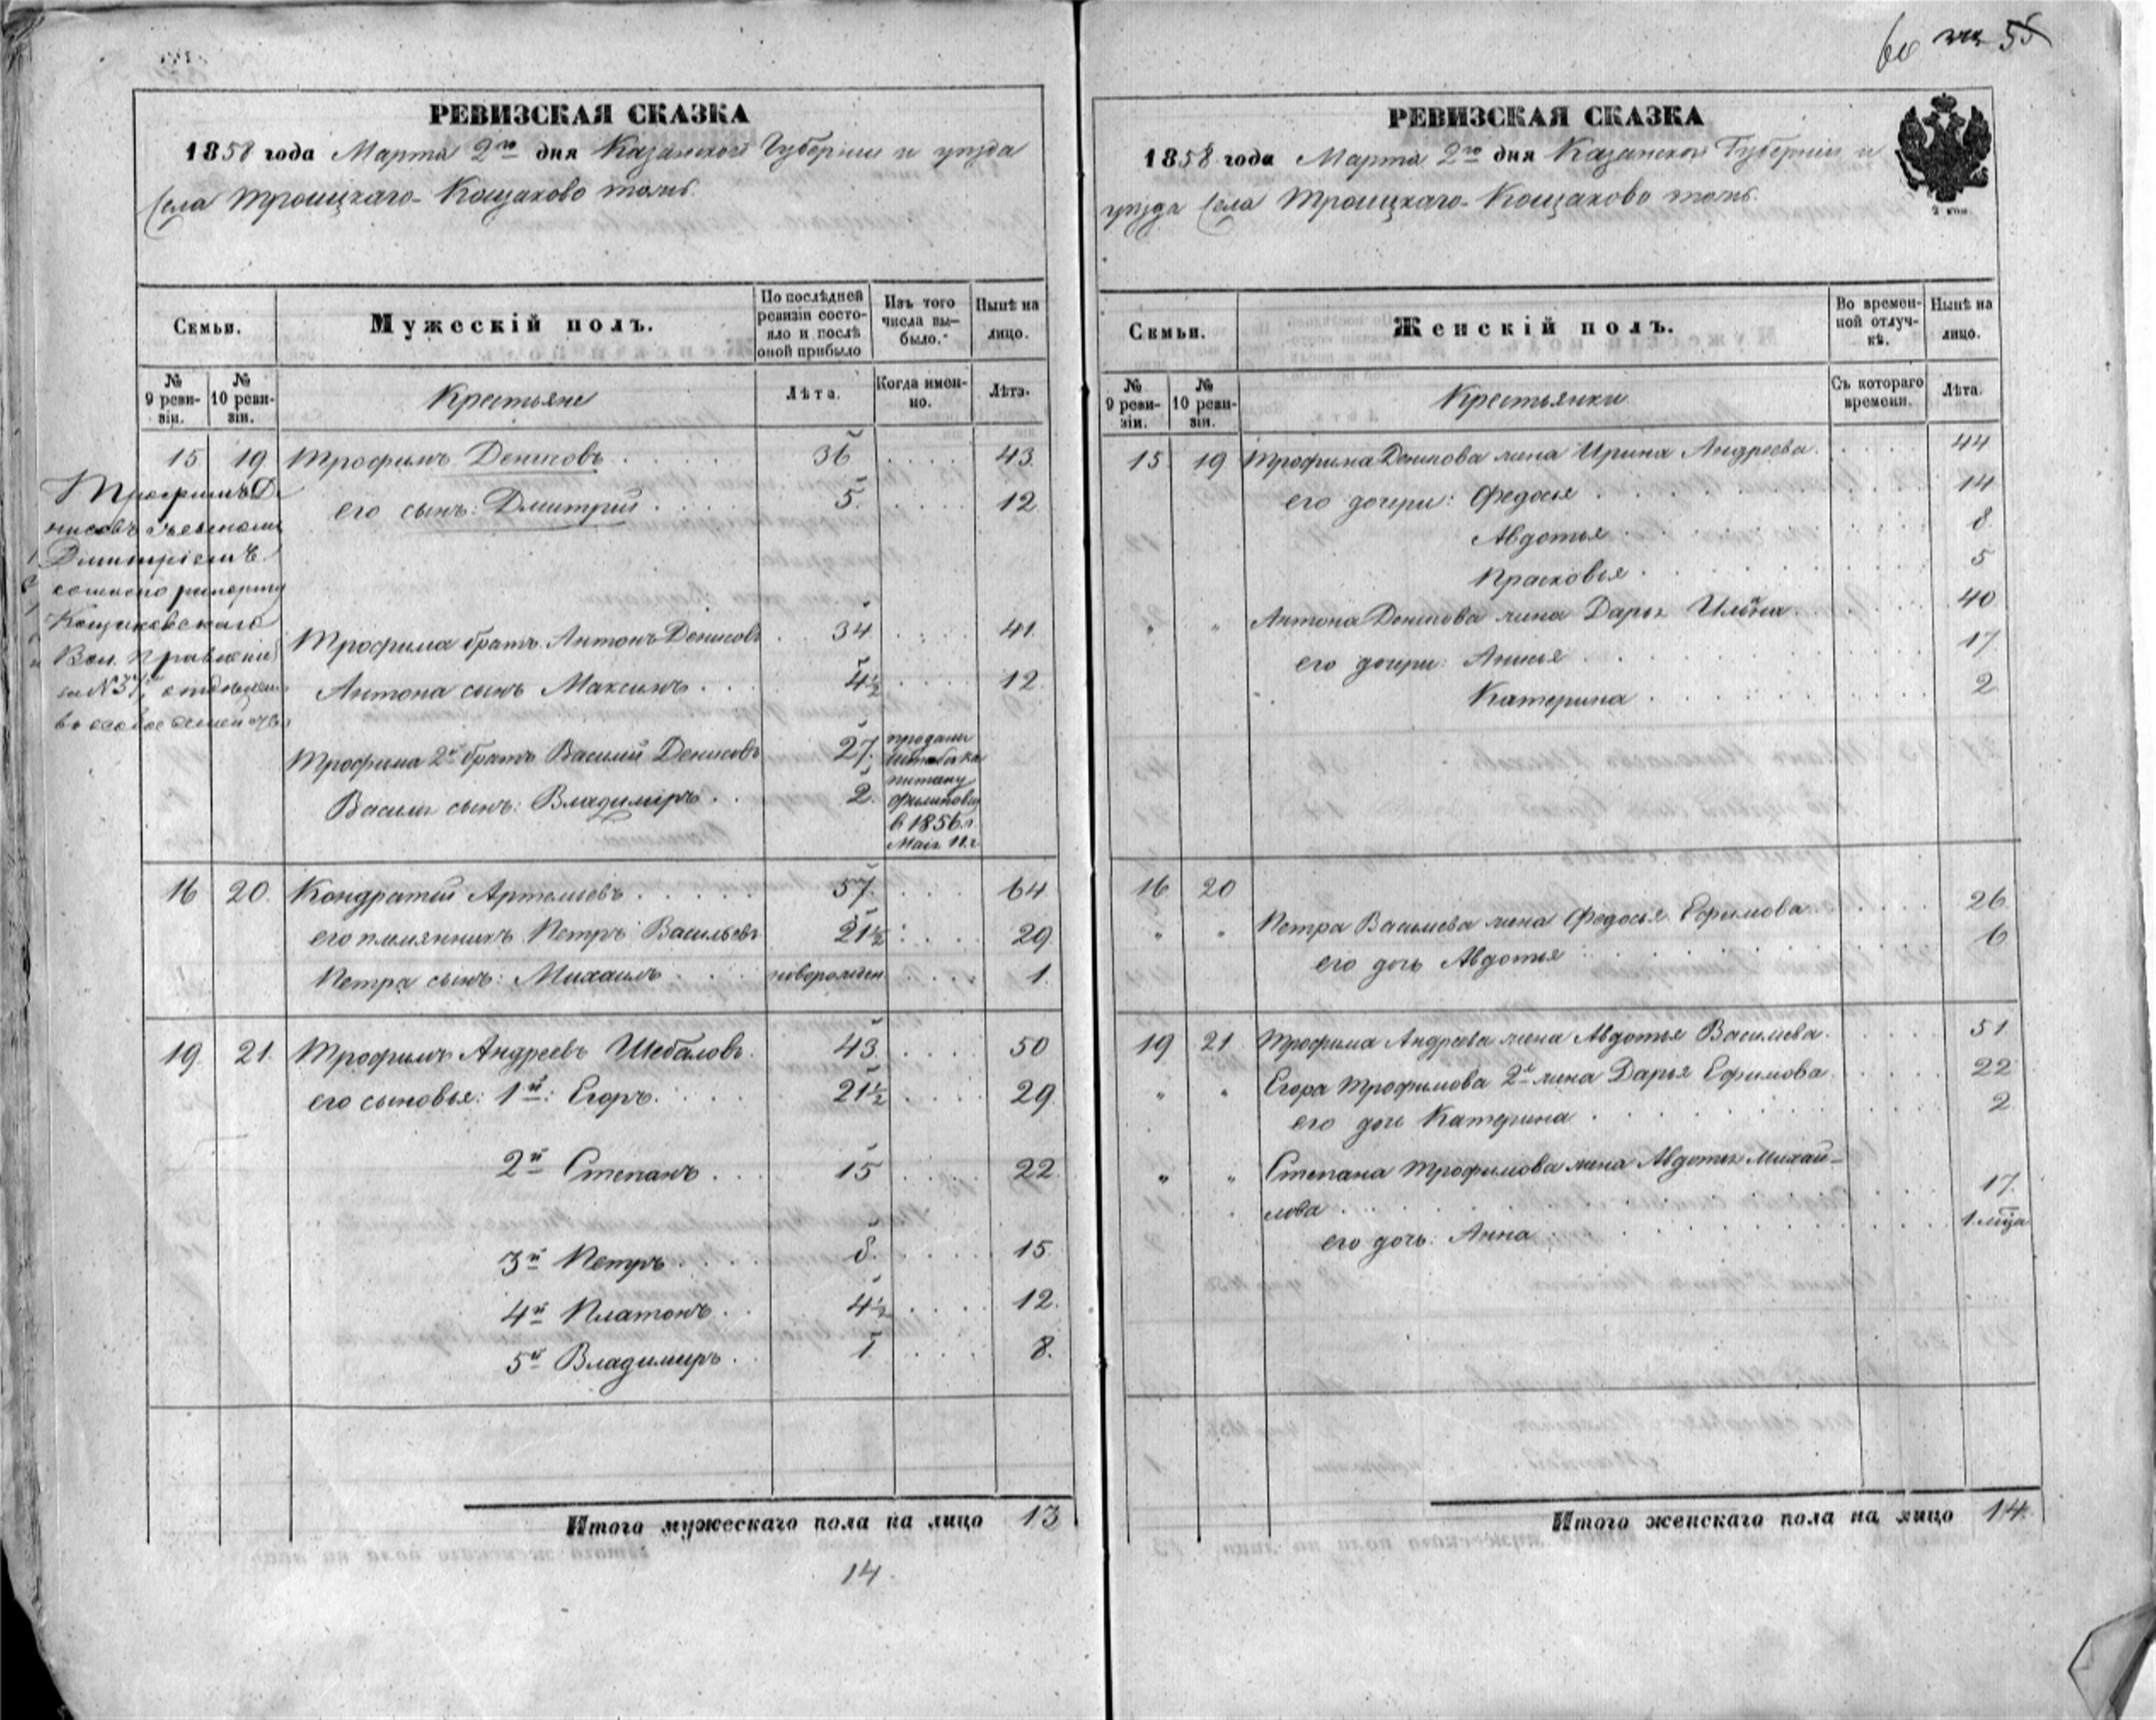 60 55
РЕВИЗСКАЯ СКАЗКА
1858 года Марта 2го дня Казанской Губернии и уезда
Села Троицкаго-Кощаково тожъ.
Семьи.
Мужескій полъ.
По послѣдней ревизіи состояло и послѣ оной прибыло
Изъ того числа выбыло.
Нынѣ на лицо.
№ 9 ревизіи.
№ 10 ревизіи.
Крестьяне
Лѣта.
Когда именно.
Лѣта.
15 19 Трофимъ Денисовъ 36 43.
его сынъ: Дмитрий 5. 12
Трофимъ Де
нисовъ съ сыномъ
Дмитріемъ
согласно рапорту
Кощаковскаго
Вол. Правленія
за №37
Трофима братъ Антонъ Денисовъ 34 41.
Антона сынъ Максимъ 4½ 12.
Трофима 2й братъ Василий Денисовъ 27.
Василья сынъ: Владимиръ 2.
проданы
Штабска
питану
Филипову
в 1856 г.
Маія 11.
16 20. Кондратий Артемьевъ 57. 64
его племянникъ Петръ Васильевъ 21½ 29.
Петра сынъ: Михаилъ новорожден 1.
19. 21. Трофимъ Андреевъ Шебаловъ. 43. 50
его сыновья: 1й: Егоръ. 21½ 29.
2й Степанъ 15 22.
3й Петръ 8. 15.
4й Платонъ 4½ 12.
5й Владимиръ 1. 8.
Итого мужескаго пола на лицо 13
14.
РЕВИЗСКАЯ СКАЗКА
2 коп.
1858 года Марта 2го дня Казанской Губернии и
уезда Села Троицкаго-Кощаково тожъ.
Семьи.
Женскій полъ.
Во временной отлучкѣ.
Нынѣ на лицо.
№ 9 ревизіи.
№ 10 ревизіи.
Крестьянки
Съ котораго времени.
Лѣта.
15. 19 Трофима Денисова жена Ирина Андреева. 44
его дочери: Федосья 14
Авдотья 8.
Прасковья 5
„ „ Антона Денисова жена Дарья Ильина. 40
его дочери: Анисья 17.
Катерина 2.
16. 20
„ „ Петра Васильева жена Федосья Ефимова. 26.
его дочь Авдотья 6
19 21. Трофима Андреева жена Авдотья Васильева. 51.
„ „ Егора Трофимова 2я жена Дарья Ефимова. 22.
его дочь Катерина 2.
„ „ Степана Трофимова жена Авдотья Михай-
лова 17.
его дочь: Анна 1 мца
Итого женскаго пола на лицо 14.